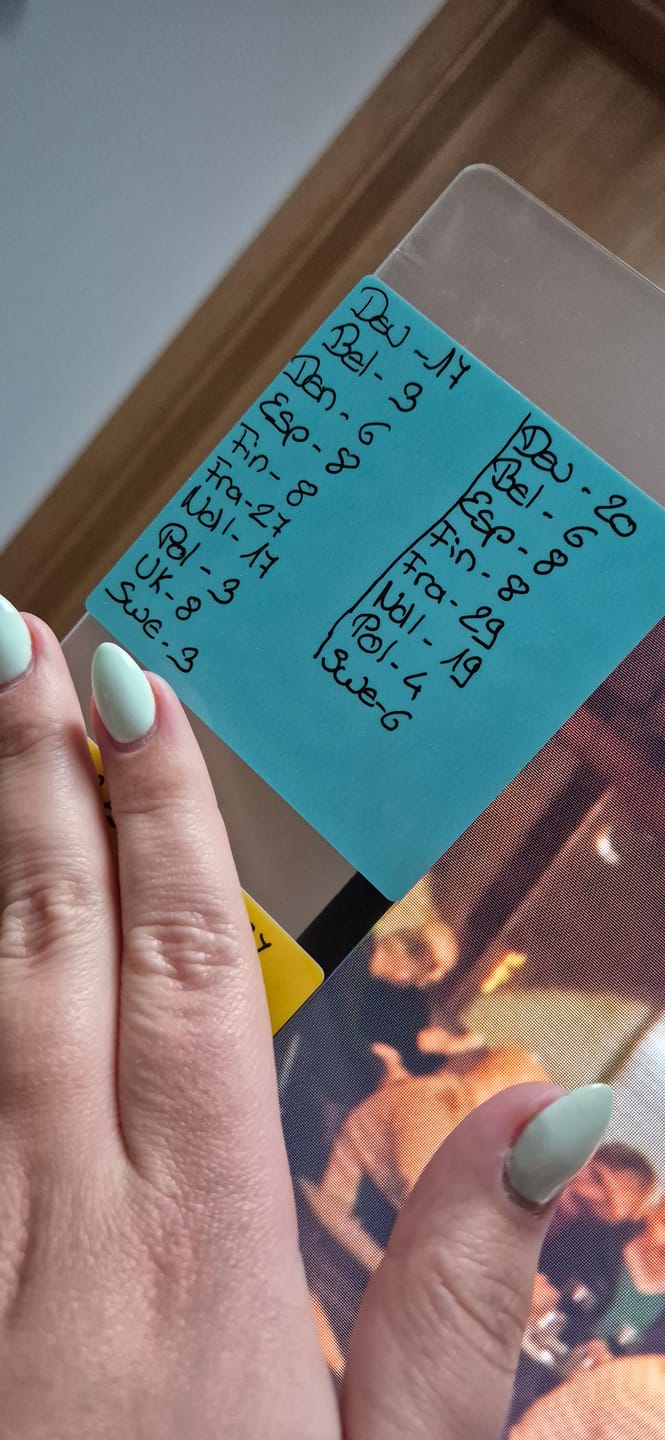 Deu - 17
Bel - 3
Den - 6
Esp - 8
Fin - 8
Fra - 27
Noll - 17
Pol - 3
UK - 8
Swe - 3
Deu - 20
Bel - 6
Esp - 8
Fin - 8
Fra - 29
Noll - 19
Pol - 4
Swe - 6